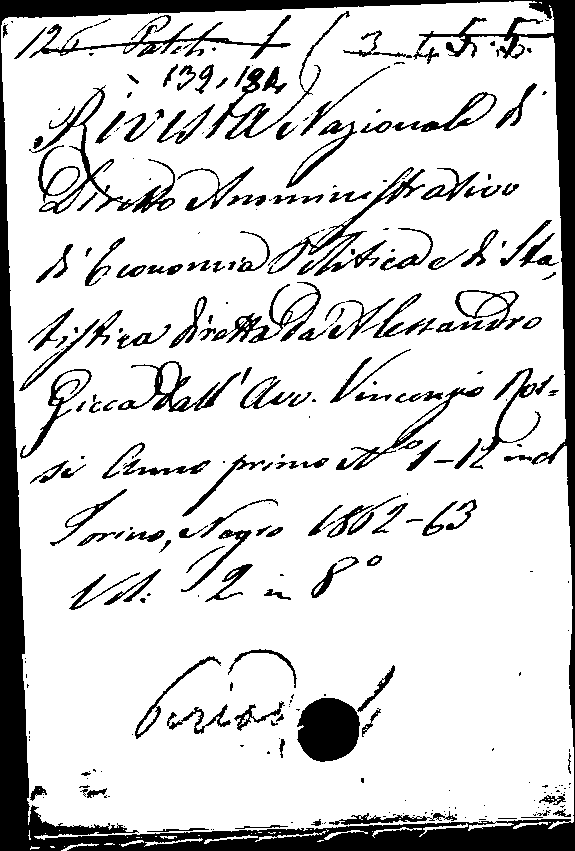 126. Palch. 1 ( 3 4 5. 5.
139, 184
Rivista Nazionale di
Diritto Amministrativo
di Economia Politica e di Sta,
tistica diretta da Alessandro
Gicca dall' Avv. Vincenzio Ros=
si Anno primo No 1-12 incl
Torino, Negro 1862-63
Vol: 2 in 8°
Period